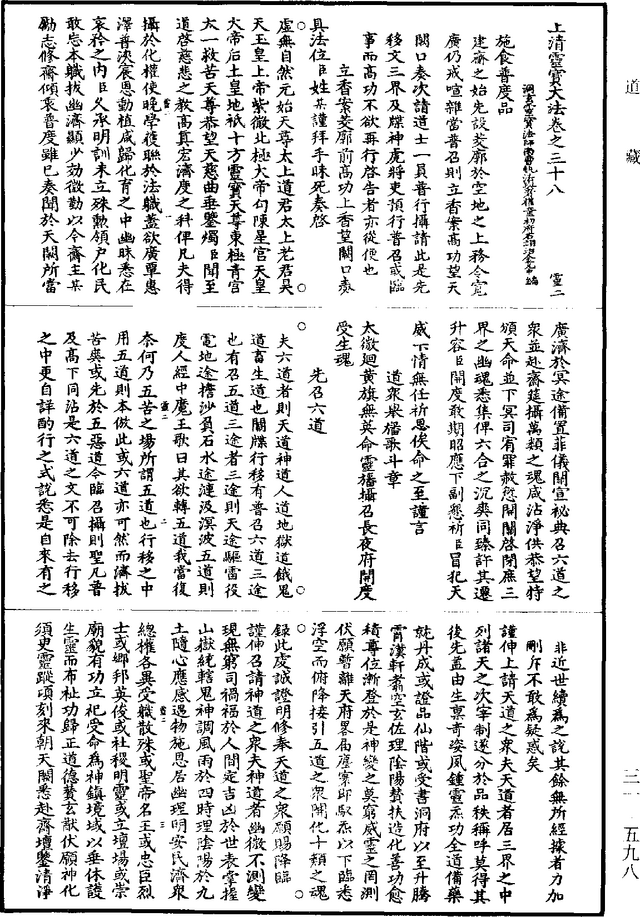 道藏
上清靈寶大法卷之三十八
靈二
施食普度品
建齋之始先設茭廓於空地之上務令寬
廣仍戒喧雜當普召則立香案高功望天
闕口奏次請道士一員普行攝請此是先
移文三界及牒神虎將吏預行普召或臨
事而高功不欲再行啓告者亦從便也
立香案茭廓前高功上香望闕口奏
具法位臣姓某謹拜手昧死奏啓
虛無自然元始天尊太上道君太上老君昊
天玉皇上帝紫微北極大帝勾陳星宮天皇
大帝后土皇地祇十方靈寶天尊東極青宮
太一救苦天尊恭望天慈曲垂鑒燭臣聞至
道啓慈悲之教高真宏濟度之科俾凡夫得
攝於化權使晚學獲聯於法職蓋欲廣覃惠
澤普浹宸恩動植咸歸化育之中幽昧悉在
哀矜之內臣久承明訓未立殊勳領户化民
敢忘本職拔幽濟顯少効微勤以今齋主某
勵志修齋傾哀普度雖已奏聞於天闕所當
廣濟於冥途備置菲儀開宣祕典召六道之
衆並赴齋筵攝萬類之魂咸沾淨供恭望特
頒天命並下冥司宥罪赦愆開關啓閉庶三
界之幽魂悉集俾六合之沉爽同臻許其遷
升容臣開度敢期昭應下副懇祈臣冒犯天
威下情無任祈恩俟命之至謹言
道衆舉旛歌斗章
太微迴黄旗無英命靈旛攝召長夜府開度
受生魂
先召六道
夫六道者則天道神道人道地獄道餓鬼
道畜生道也關牒行移有普召六道三途
也有召五道三途者三途則天途驅雷役
電地途擔沙負石水途漣汲溟波五道則
度人經中魔王歌曰其欲轉五道我當復
奈何乃五苦之場所謂五道也行移之中
用五道則本倣此或六道亦可然而濟拔
苦爽或先於五惡道令臨召攝則聖凡普
及高下同沾是六道之文不可除去行移
之中更自詳酌行之式說悉是自來有之
非近世續爲之說其餘無所經據者力加
刪斥不敢爲疑惑矣
謹伸上請天道之衆夫天道者居三界之中
列諸天之次宰制遂分於品秩稱呼莫得其
後先蓋由生禀奇姿風鍾靈炁功全道備藥
就丹成或證品仙階或受書洞府以至升騰
霄漢軒翥空玄佐理陰陽賛扶造化善功愈
積尊位漸登於是神變之莫窮威靈之罔測
伏願暫離天府畧屆塵寰即馭炁以下臨悉
浮空而俯降接引五道之衆開化十類之魂
錄此虔誠證明修奉天道之衆願賜降臨
謹伸召請神道之衆夫神道者幽微不測變
現無窮司禍福於人間定吉凶於世表掌握
山嶽統轄鬼神調風雨於四時理陰陽於九
土隨心應感遇物施恩居幽理明安民濟衆
總權各異受職散殊或聖帝名王或忠臣烈
士或鄉邦英俊或社稷明靈或立壇場或崇
廟貌有功立祀受命爲神鎮境域以垂休護
生靈而布祉功歸正道德賛玄猷伏願神化
須臾靈蹤頃刻來朝天闕悉赴齋壇鑒清淨
三一 五九八